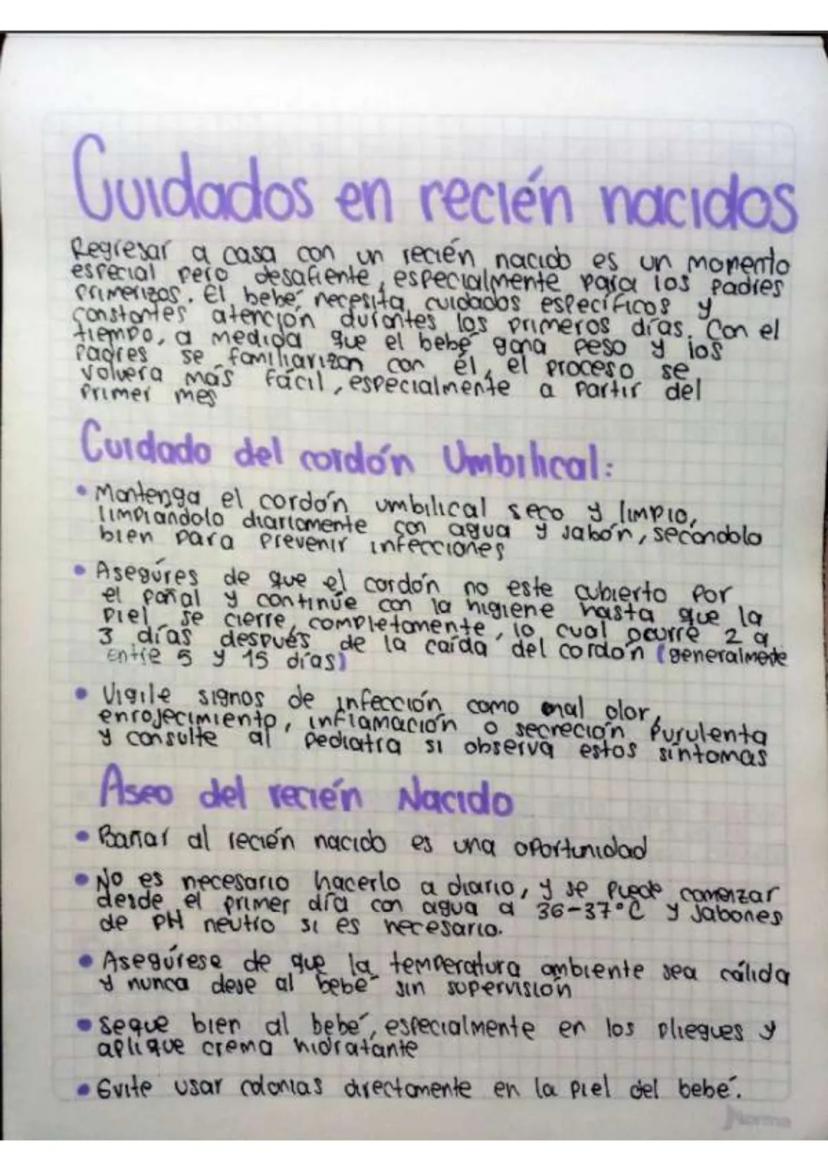 Cuidados en recién nacidos
Regresar a casa con un recién nacido es un momento
especial pero desafiente, especialmente para los padres
primerizos. El bebé necesita cuidados específicos y
constantes atención durantes los primeros días. Con el
tiempo, a medida que el bebé gana peso y los
Padres se familiarizan con él, el proceso se
volvera más fácil, especialmente a partir del
Primer mes
Cuidado del cordón Umbilical:
• Mantenga el cordón umbilical seco y limpio,
limpiándolo diariamente con agua y jabón, secándolo
bien para prevenir infecciones
• Asegúres de que el cordón no este cubierto por
el pañal y continúe con la higiene hasta que la
piel se cierre completamente, lo cual ocurre 2 a
3 días después de la caída del cordón (generalmente
entre 5 y 15 días)
• Vigile signos de infección como mal olor,
enrojecimiento, inflamación o secreción Purulenta
y consulte al pediatra si observa estos síntomas
Aseo del recién Nacido
• Bañar al recién nacido es una oportunidad
• No es necesario hacerlo a diario, y se puede comenzar
desde el primer día con agua a 36-37°C y Jabones
de PH neutro si es necesario.
• Asegúrese de que la temperatura ambiente sea cálida
y nunca deje al bebé sin supervisión
• Seque bien al bebé, especialmente en los pliegues y
aplique crema hidratante
• Evite usar colonias directamente en la piel del bebé.
Norma